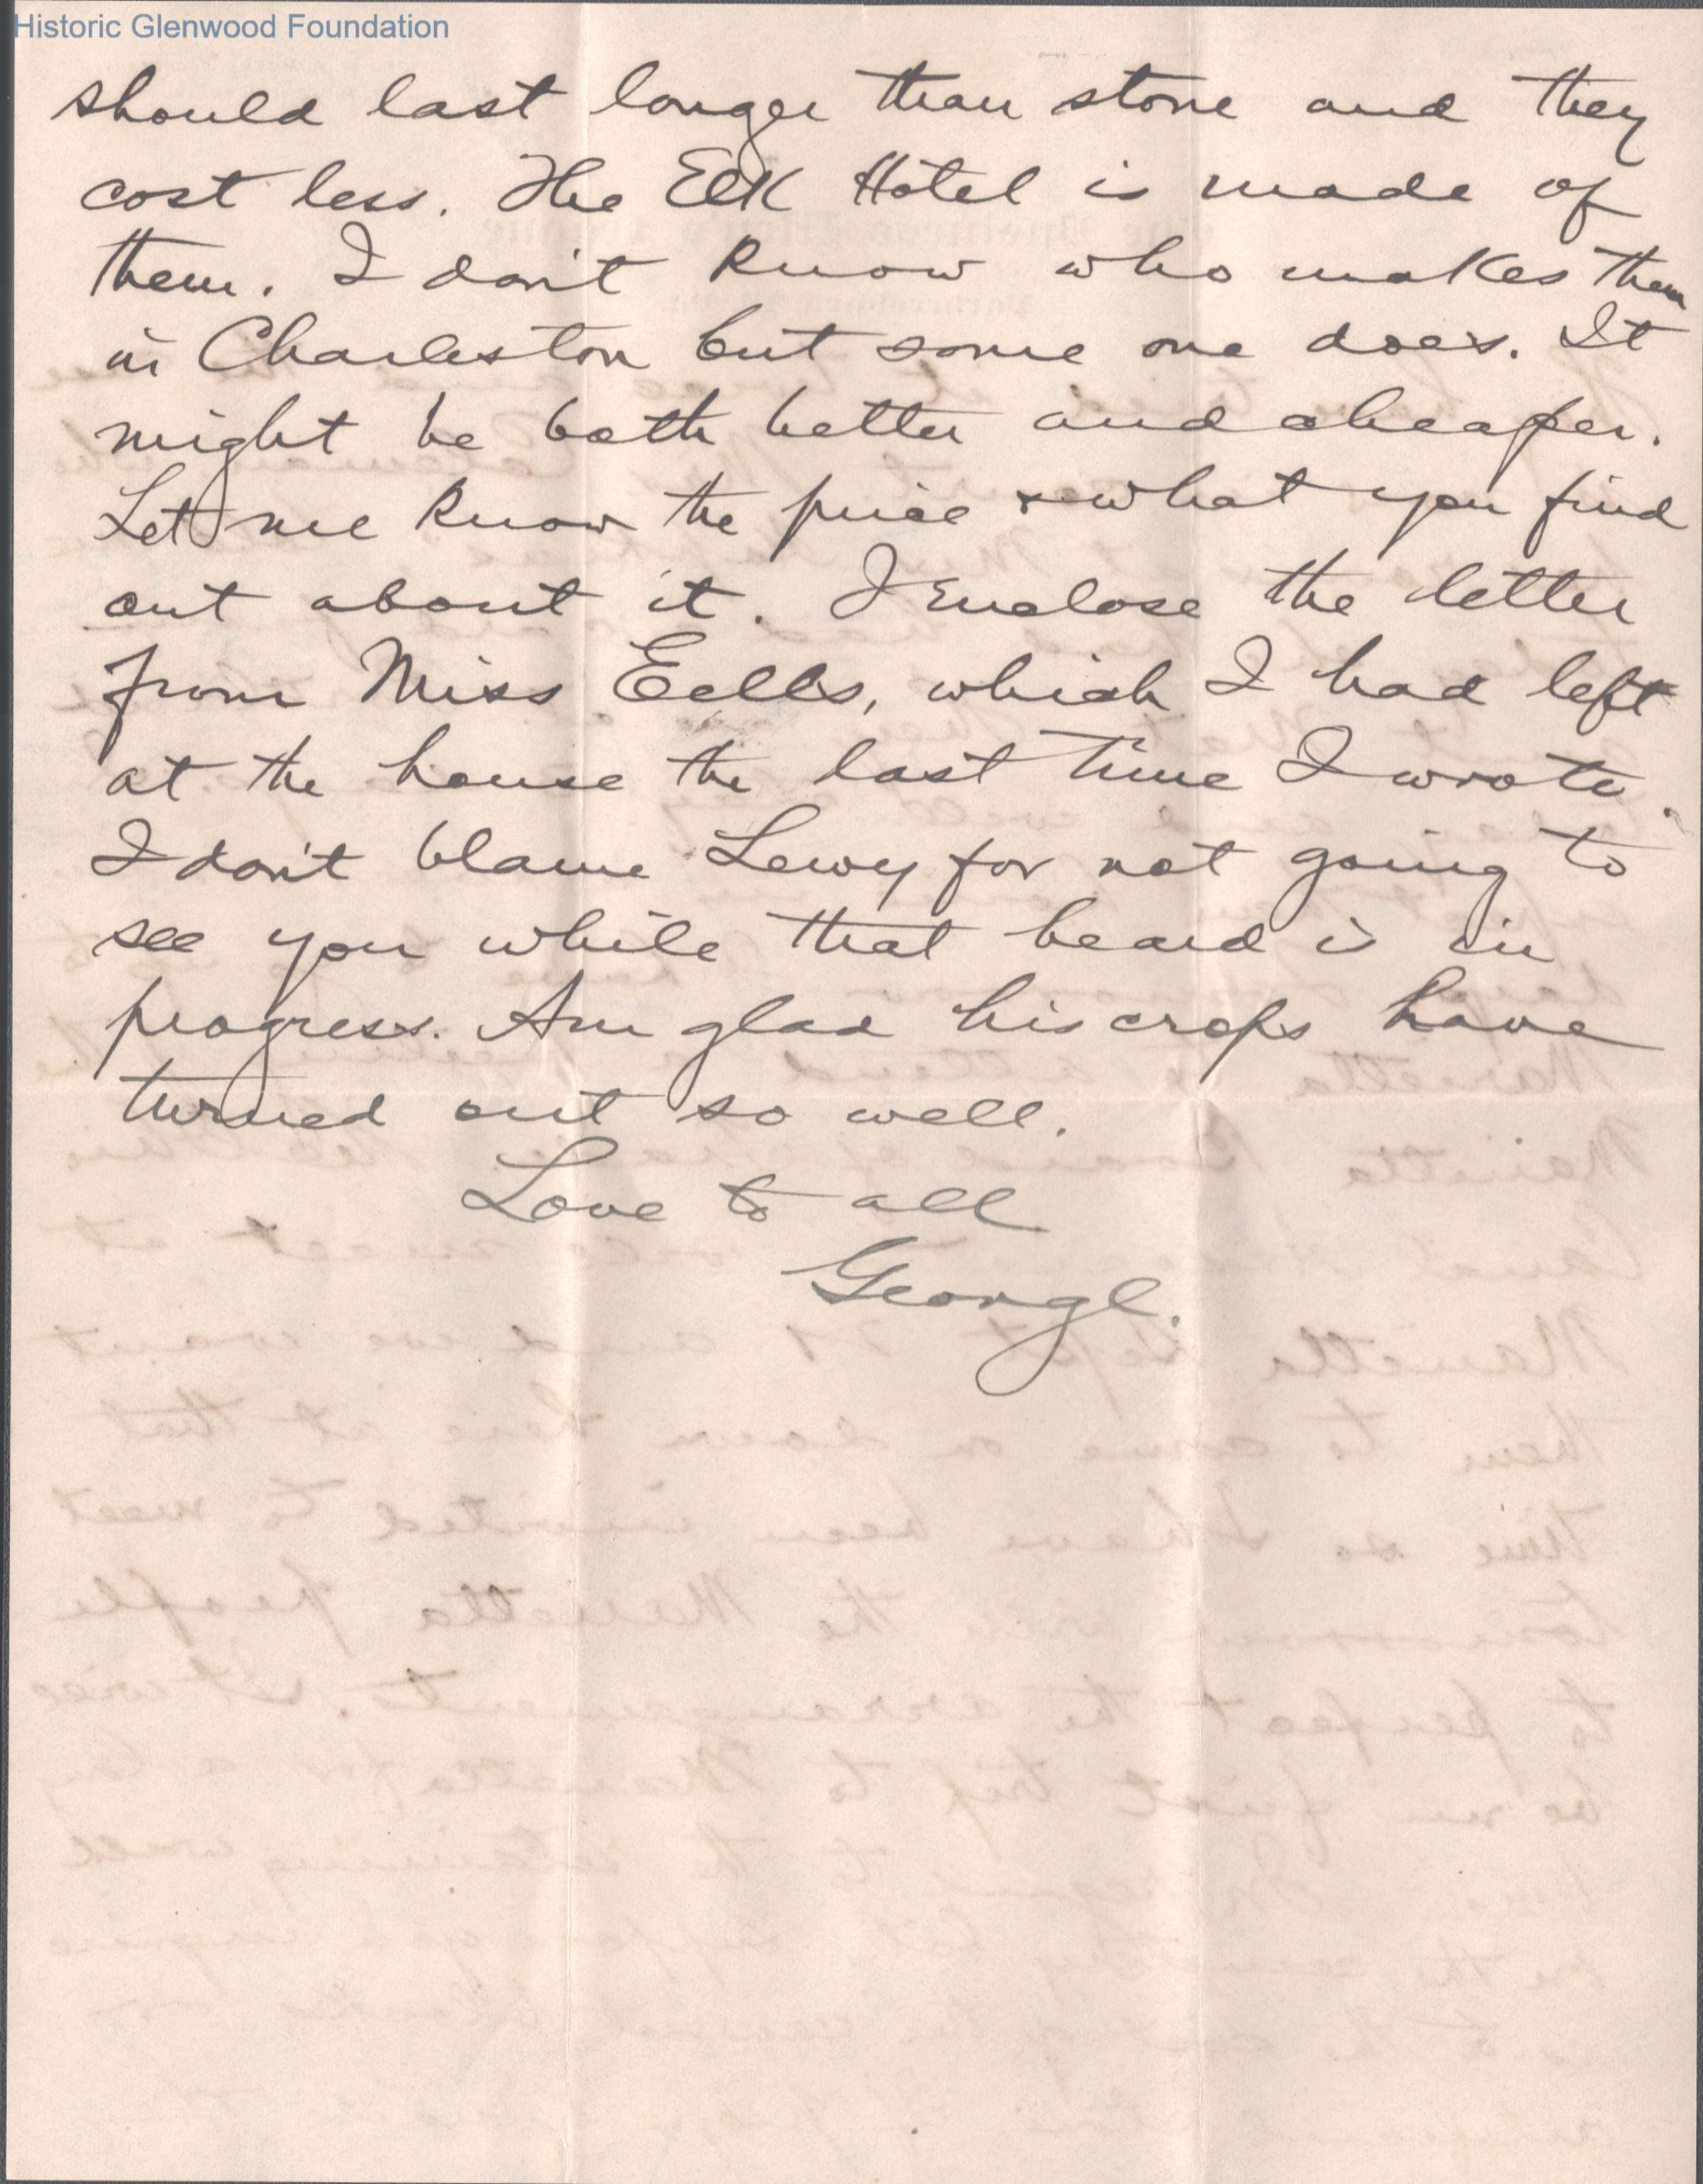 Historic Glenwood Foundation
should last longer than stone and they
cost less. The Elk Hotel is made of
them. I don't know who makes them
in Charleston but some one does. It
might be both better and cheaper.
Let me know the price & what you find
out about it. I enclose the letter
from Miss Eells, which I had left
at the house the last time I wrote.
I don't blame Lewy for not going to
see you while that beard is in
progress. Am glad his crops have
turned out so well.
Love to all
George.